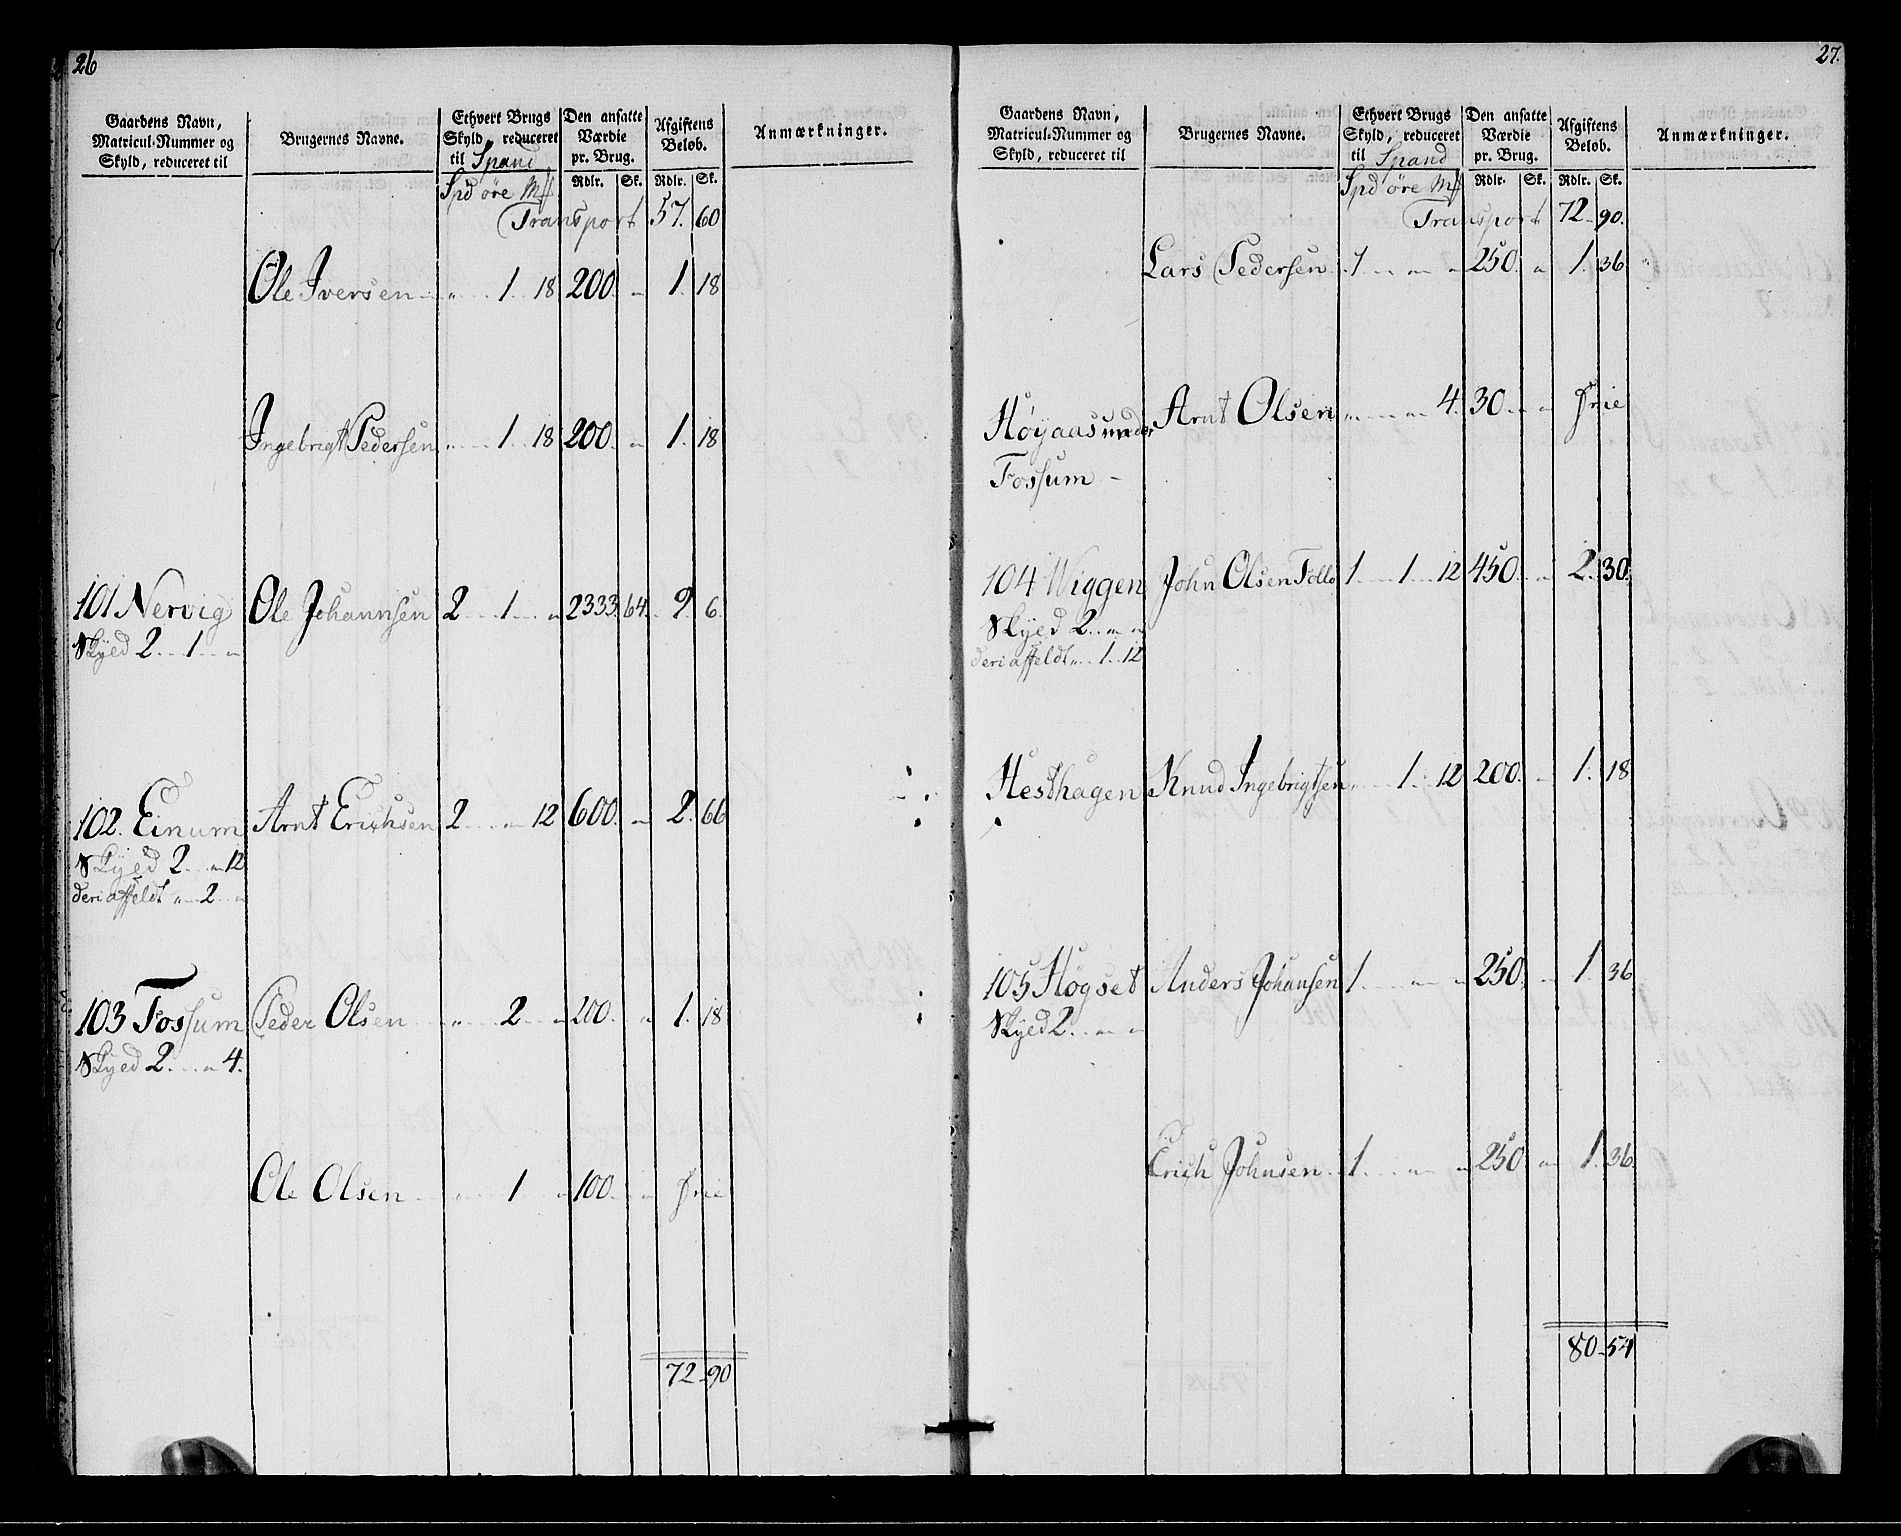 26
Gaardens Navn, Matricul-Nummer og Skyld, reduceret til
Brugernes Navne.
Ethvert Brugs Skyld, reduceret til Spand
Den ansatte Værdie pr. Brug.
Afgiftens Beløb.
Anmærkninger.
Spd øre Mf Rdlr. Sk. Rdlr. Sk.
Transport 57. 60
Ole Iversen " 1 18 200. " 1. 18
Ingebrigt Pedersen " 1 18 200. " 1. 18
101 Nervig Ole Johannsen 2 1 " 2333. 64. 9. 6.
Skyed 2 1 "
102. Einum Arnt Erichsen 2 " 12 600. " 2. 66
Skyed 2 " 12
deri affeldt " 2 "
103 Fossum Peder Olsen " 2 " 200. " 1. 18
Skyed 2 " 4.
Ole Olsen " 1 " 100. " Frie
72 - 90
27.
Gaardens Navn, Matricul-Nummer og Skyld, reduceret til
Brugernes Navne.
Ethvert Brugs Skyld, reduceret til Spand
Den ansatte Værdie pr. Brug.
Afgiftens Beløb.
Anmærkninger.
Spd øre Mf Rdlr. Sk. Rdlr. Sk.
Transport 72 - 90.
Lars Pedersen 1 " " 250. " 1. 36
Høyaas under Arnt Olsen " " 4. 30. " Frie
Fossum -
104 Wiggen John Olsen Follo 1 1 12 450. " 2. 30.
Skyed 2 " "
deri affeldt " 1 12
Hesthagen Knud Ingebrigtsen " 1. 12 200. " 1. 18
105 Høgset Anders Johansen 1 " " 250 " 1. 36
Skyed 2 " "
Erich Johnsen 1 " " 250 " 1. 36.
80 - 54